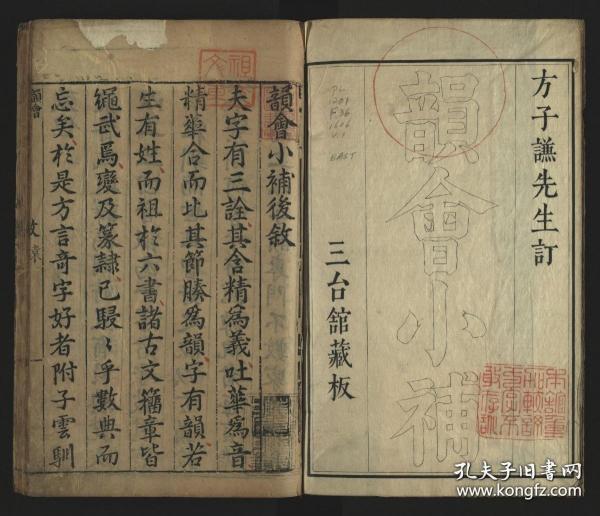 方子謙先生訂
韻會小補
三台舘藏板
PL
1201
F36
1606
v.1
EAST
韻會小補後敘
夫字有三詮其含精為義吐華為音
精華合而比其節腠為韻字有韻若
生有姓而祖於六書諸古文籀章皆
繩武焉變及篆隷已駸々乎數典而
忘矣於是方言竒字好者附子雲馴
韻會
孔夫子旧書网
www.kongfz.com